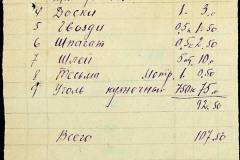 4 Доски 1 3.0
5 Гвозди 0,5к 1.50
6 Шпагат 0,5к 2.50
7 Шлей 10.
8 Тесьма Метр. 1 0.50
9 Уголь 750к 75.0
92.50
Всего 107.50